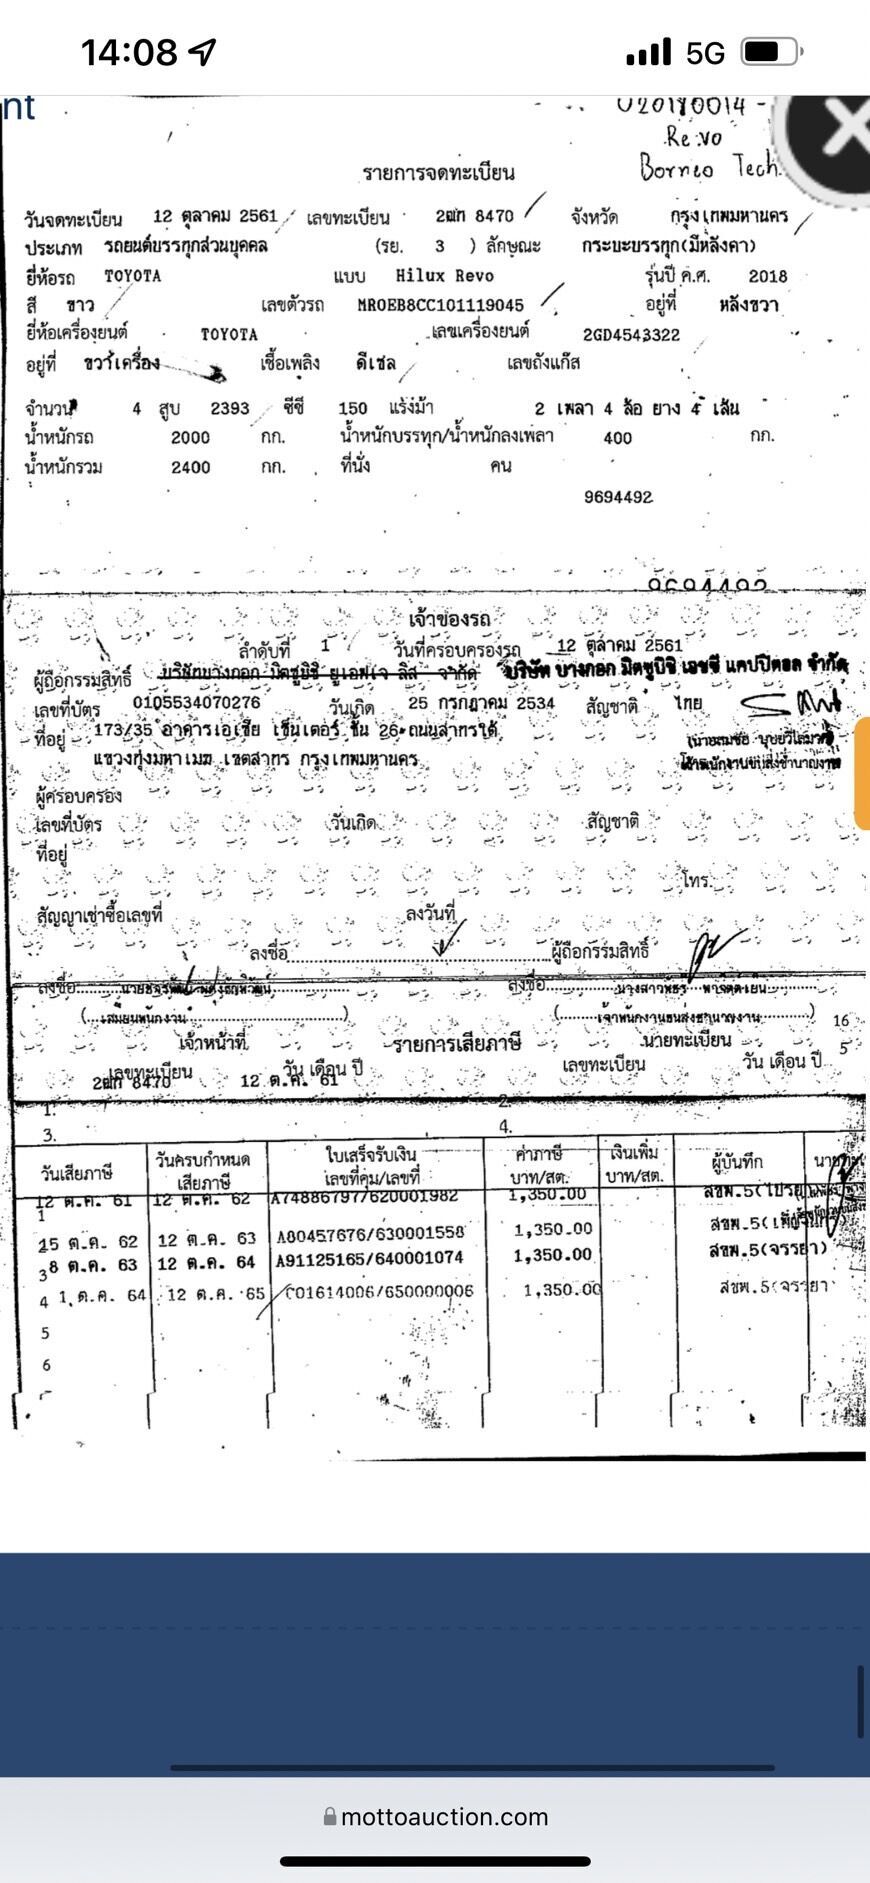 14:08 5G
nt
020180014 -
Revo
Borneo Tech.
รายการจดทะเบียน
วันจดทะเบียน 12 ตุลาคม 2561 เลขทะเบียน 8470 จังหวัด กรุงเทพมหานคร
ประเภท รถยนต์บรรทุกส่วนบุคคล (รย. 3 ) ลักษณะ กระบะบรรทุก(มีหลังคา)
ยี่ห้อรถ TOYOTA แบบ Hilux Revo รุ่นปี ค.ศ. 2018
สี ขาว เลขตัวรถ MR0EB8CC101119045 อยู่ที่ หลังขวา
ยี่ห้อเครื่องยนต์ TOYOTA เลขเครื่องยนต์ 2GD4543322
อยู่ที่ ขวาเครื่อง เชื้อเพลิง ดีเซล เลขถังแก๊ส
จำนวน 4 สูบ 2393 ซีซี 150 แรงม้า 2 เพลา 4 ล้อ ยาง 4 เส้น
น้ำหนักรถ 2000 กก. น้ำหนักบรรทุก/น้ำหนักลงเพลา 400 กก.
น้ำหนักรวม 2400 กก. ที่นั่ง คน
9694492
9694492
เจ้าของรถ
ลำดับที่ 1 วันที่ครอบครองรถ 12 ตุลาคม 2561
ผู้ถือกรรมสิทธิ์ บริษัทบางกอก มิตซูบิชิ ยูเอฟเจ ลิส จำกัด บริษัท บางกอก มิตซูบิชิ เอชซี แคปปิตอล จำกัด
เลขที่บัตร 0105534070276 วันเกิด 25 กรกฎาคม 2534 สัญชาติ ไทย
ที่อยู่ 173/35 อาคารเอเซีย เซ็นเตอร์ ชั้น 26 ถนนสาทรใต้
แขวงทุ่งมหาเมฆ เขตสาทร กรุงเทพมหานคร
เจ้าพนักงานขนส่งชำนาญงาน
ผู้ครอบครอง
เลขที่บัตร วันเกิด สัญชาติ
ที่อยู่
โทร.
สัญญาเช่าซื้อเลขที่ ลงวันที่
ลงชื่อ ผู้ถือกรรมสิทธิ์
ลงชื่อ ลงชื่อ
(...เสมียนพนักงาน...) (...เจ้าพนักงานขนส่งชำนาญงาน...) 16
เจ้าหน้าที่ รายการเสียภาษี นายทะเบียน 5
เลขทะเบียน วัน เดือน ปี เลขทะเบียน วัน เดือน ปี
8470 12 ต.ค. 61
1. 2.
3. 4.
วันเสียภาษี วันครบกำหนดเสียภาษี ใบเสร็จรับเงิน เลขที่คุม/เลขที่ ค่าภาษี บาท/สต. เงินเพิ่ม บาท/สต. ผู้บันทึก
12 ต.ค. 61 12 ต.ค. 62 A74886797/620001982 1,350.00
1
2 15 ต.ค. 62 12 ต.ค. 63 A80457676/630001558 1,350.00
3 8 ต.ค. 63 12 ต.ค. 64 A91125165/640001074 1,350.00 สขพ.5(จรรยา)
4 1 ต.ค. 64 12 ต.ค. 65 C01614006/650000006 1,350.00 สขพ.5(จรรยา
5
6
mottoauction.com